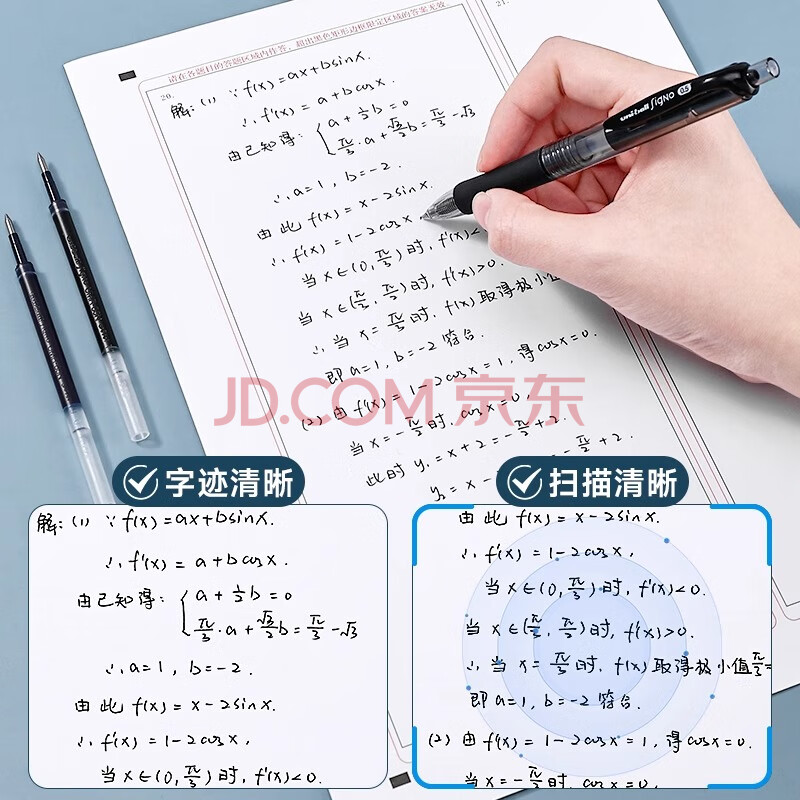 请在各题目的答题区域内作答，超出黑色矩形边框限定区域的答案无效
21.
20.
解：(1) ∵ f(x)=ax+bsinx.
∴ f'(x) = a+bcosx.
由已知得：{a+½b=0
π/3·a+√3/2b=π/3-√3
∴ a=1, b=-2.
由此 f(x)=x-2sinx.
∴ f'(x)=1-2cosx
当 x∈(0,π/3)时, f'(x)<
当 x∈(π/3,π/2)时, f'(x)>0.
∴ 当 x=π/3时. f(x)取得极小值
即 a=1, b=-2 符合.
(2) 由 f'(x)=1-2cosx=1, 得cosx=0.
当 x=-π/2时. cosx=0,
此时 y₁=x+2=-π/2+2.
y₂=x-
-π/2+2.
uni-ball SigNO 0.5
JD.COM 京东
字迹清晰
解：(1) ∵ f(x)=ax+bsinx.
∴ f'(x) = a+bcosx.
由已知得：{a+½b=0
π/3·a+√3/2b=π/3-√3
∴ a=1, b=-2.
由此 f(x)=x-2sinx.
∴ f'(x) = 1-2cosx,
当 x∈(0,π/3)时, f'(x)<0.
扫描清晰
由此 f(x)=x-2sinx.
∴ f'(x) = 1-2cosx,
当 x∈(0,π/3)时, f'(x)<0.
当 x∈(π/3,π/2)时, f'(x)>0.
∴ 当 x=π/3时. f(x)取得极小值π/3-
即 a=1, b=-2 符合.
(2) 由 f'(x)=1-2cosx=1, 得cosx=0.
当 x=-π/2时. cosx=0,